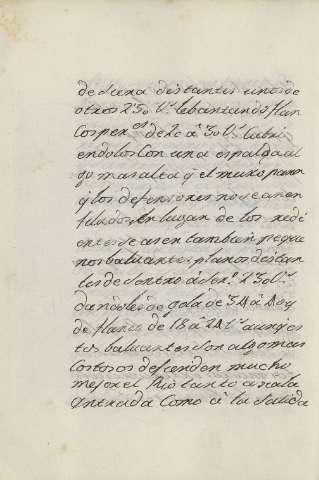 de suxa distantes unos de
otros 250 Vs lebantando flan
cos per de 20 a 30 Vs cubri
endolos con una espalda al
go mas alta q el muro para
q los defensores no sean en
filados, en lugar de los redi
entes se asen tambien peque
nos baluartes planos distan
tes de sentro a sent. 230 Vs
dandoles de gola de 34 a 40 y
de flanco de 18 a 24 Vs aunq es
tos baluartes son algo mas
costosos defienden mucho
mejor el Rio tanto a sala
entrada como a la salida